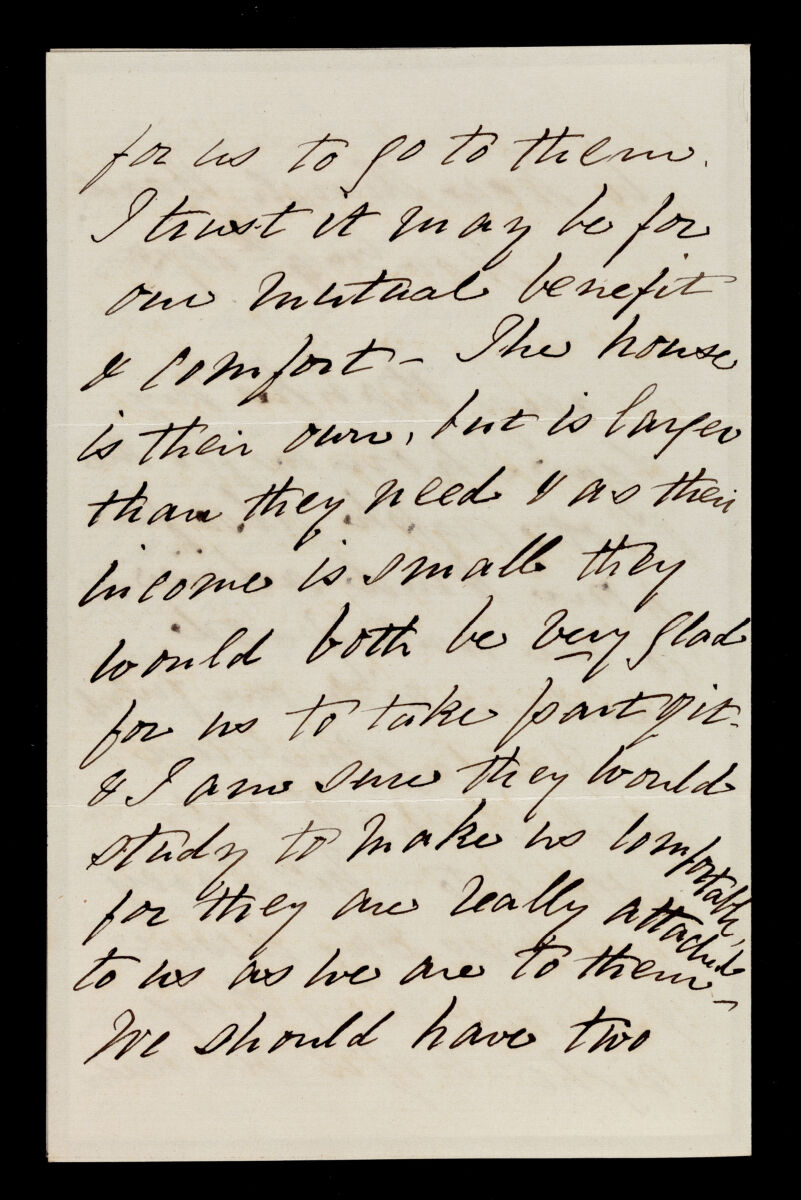 for us to go to them.
I trust it may be for
our mutual benefit
& comfort – The house
is their own, but is larger
than they need & as their
income is small they
would both be very glad
for us to take part of it –
& I am sure they would
study to make us comfortable,
for they are really attached
to us as we are to them –
We should have two